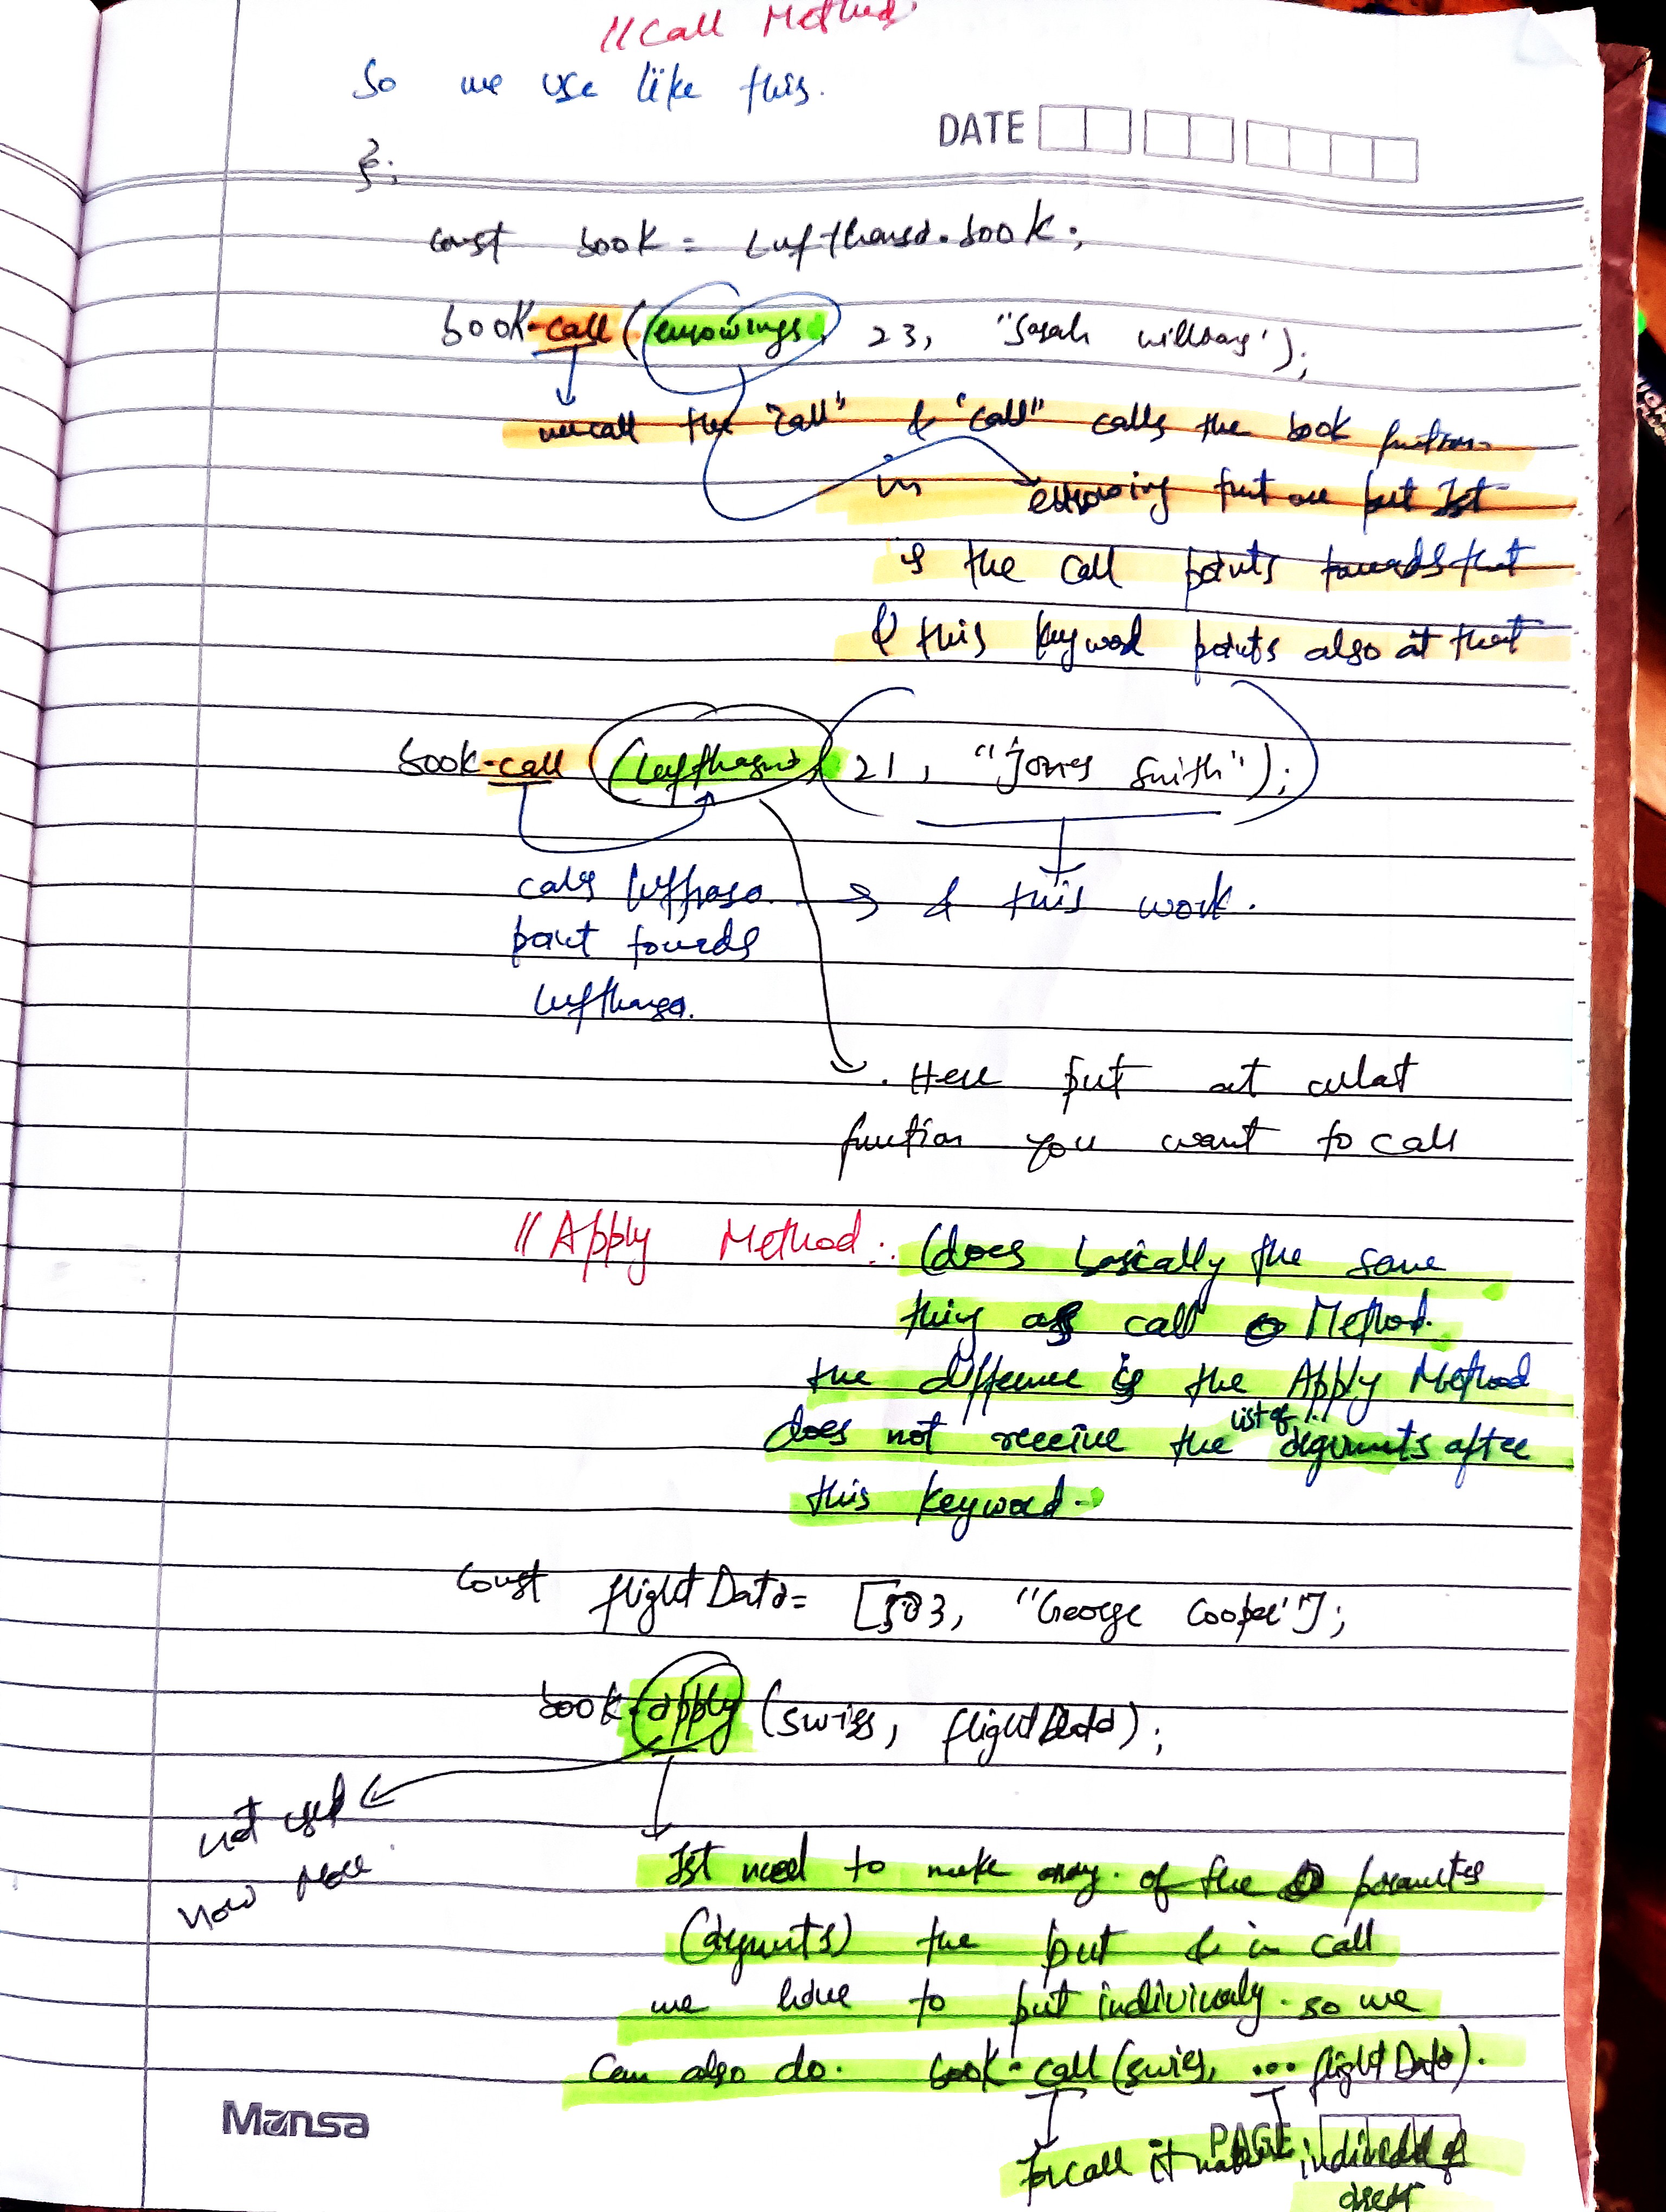 //Call Method
So we use like this.
DATE
};
const book = Lufthansa.book;
book.call (eurowings, 23, "Sarah williams");
we call the "call" & "call" calls the book function
in eurowing that we put Ist
is the call points towards that
& this keyword points also at that
book.call (Lufthansa, 21, "Jones Smith");
calls lufthasa & this work.
point towards
lufthansa.
. Here put at what
function you want to call
// Apply Method :. (does basically the same
thing as call Method.
the difference is the Apply Method
does not receive the list of arguments after
this keyword.
const flightData = [583, "George Cooper"];
book.apply (swiss, flightData);
not used
now More
Ist need to make array of the parameters
(arguments) the put & in call
we have to put individualy. so we
can also do. book.call (swiss, ... flightData).
Mansa
PAGE
for call it individual